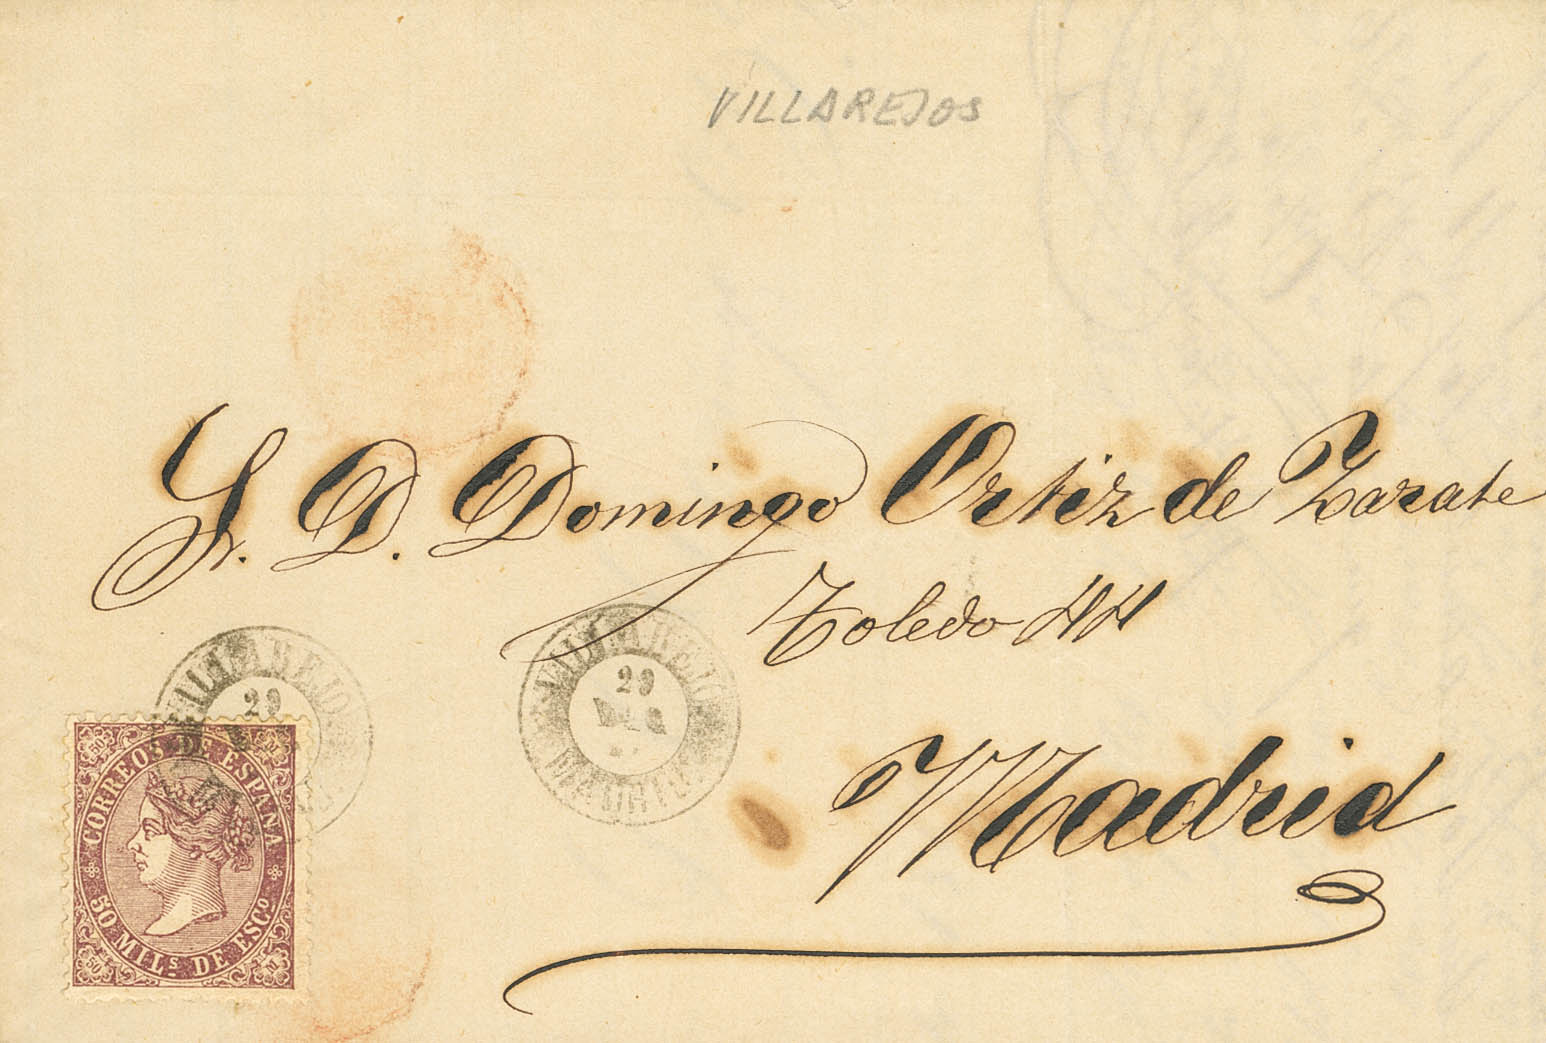 VILLAREJOS
S. D. Domingo Ortiz de Zarate
Toledo 44
Madrid
VILLAREJO
29
VILLAREJO
29
CORREOS DE ESPAÑA
50 MILS DE ESCO
50
50